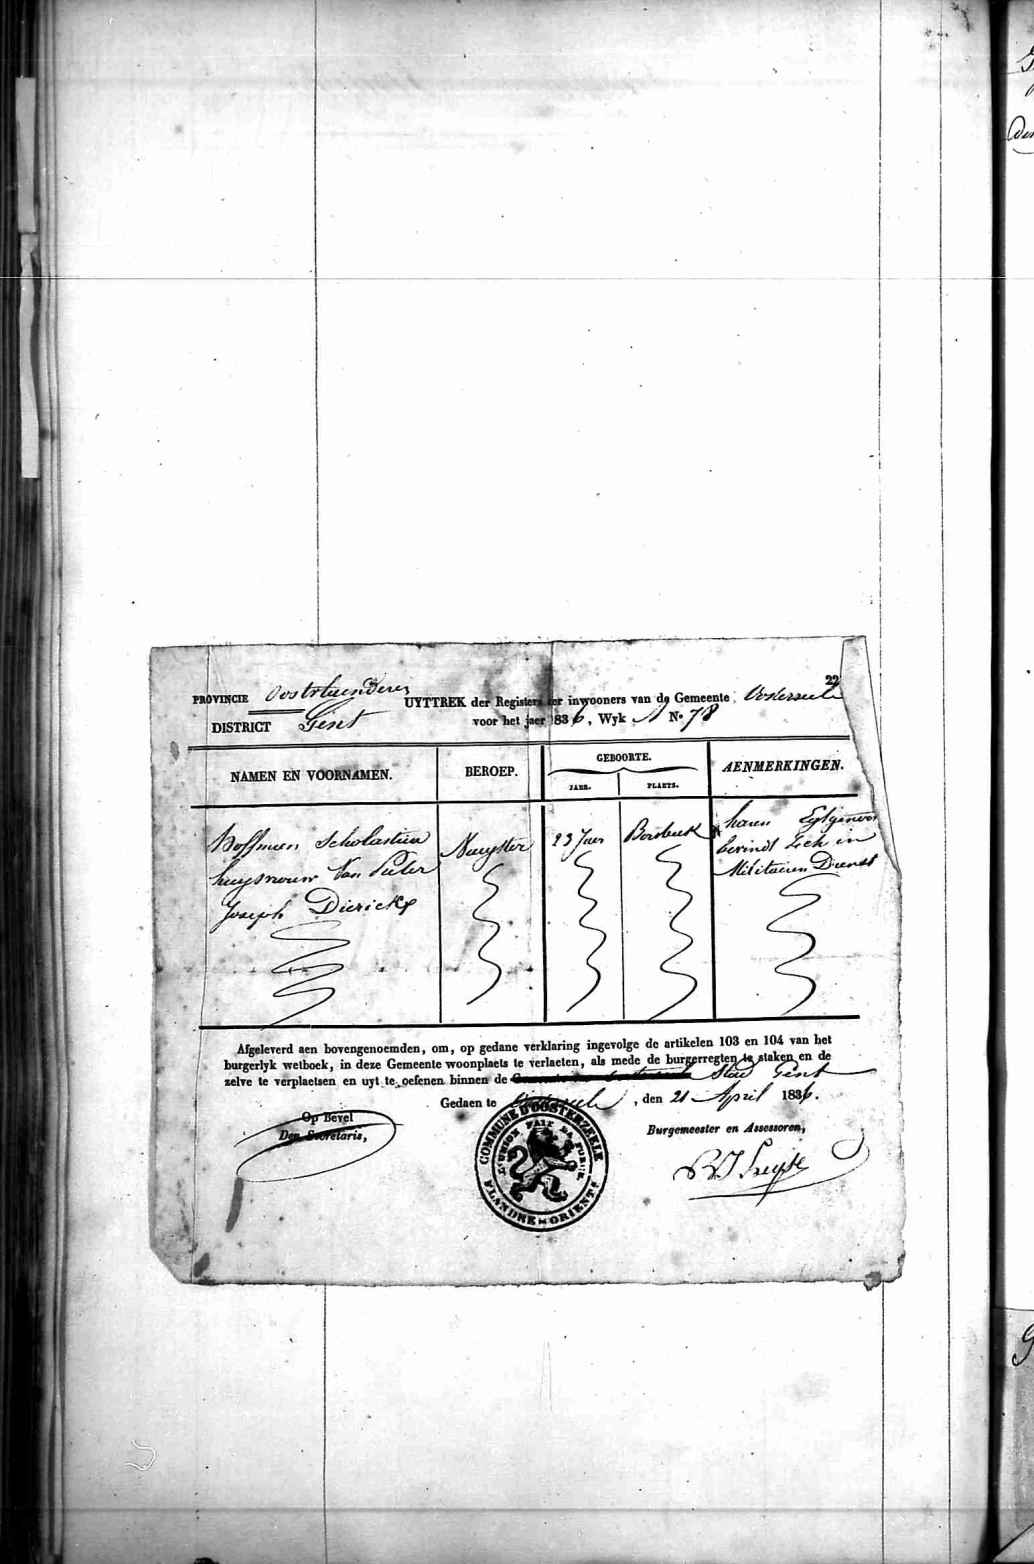 22
PROVINCIE Oostvlaenderen UYTTREK der Registers der inwooners van de Gemeente Oosterzeele
DISTRICT Gent voor het jaer 1836, Wyk A N° 78
NAMEN EN VOORNAMEN. BEROEP. GEBOORTE. AENMERKINGEN.
JAER. PLAETS.
Hoffman Scholastica Naeyster 23 Jaer Borsbeek haren Egtgenoot
huysvrouw Van Pieter bevindt zich in
Joseph Dierickx Militairen Dienst
Afgeleverd aen bovengenoemden, om, op gedane verklaring ingevolge de artikelen 103 en 104 van het
burgerlyk wetboek, in deze Gemeente woonplaets te verlaeten, als mede de burgerregten te staken en de
zelve te verplaetsen en uyt te oefenen binnen de Stad Gent
Gedaen te Oosterzeele, den 21 April 1836.
Op Bevel
Den Secretaris,
Burgemeester en Assessoren,
COMMUNE D'OOSTERZEELE
L'UNION FAIT LA FORCE
FLANDRE ORIENTLE